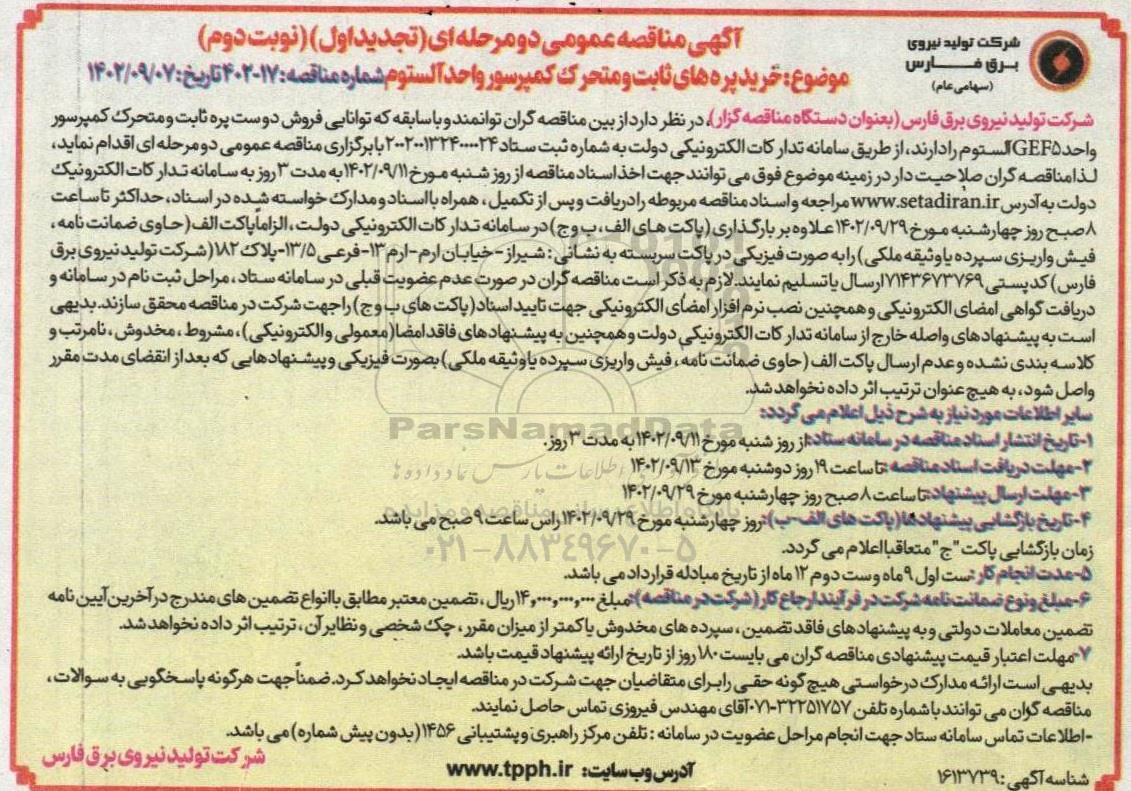 شرکت تولید نیروی
برق فارس
(سهامی عام)
آگهی مناقصه عمومی دو مرحله ای (تجدید اول) (نوبت دوم)
موضوع: خرید پره های ثابت و متحرک کمپرسور واحد آلستوم شماره مناقصه: ۱۷-۴۰۲ تاریخ: ۱۴۰۲/۰۹/۰۷
شرکت تولید نیروی برق فارس (بعنوان دستگاه مناقصه گزار)، در نظر دارد از بین مناقصه گران توانمند و با سابقه که توانایی فروش دو ست پره ثابت و متحرک کمپرسور
واحد GEF۵ آلستوم را دارند، از طریق سامانه تدارکات الکترونیکی دولت به شماره ثبت ستاد ۲۰۰۲۰۰۱۳۲۴۰۰۰۰۲۴ با برگزاری مناقصه عمومی دو مرحله ای اقدام نماید،
لذا مناقصه گران صلاحیت دار در زمینه موضوع فوق می توانند جهت اخذ اسناد مناقصه از روز شنبه مورخ ۱۴۰۲/۰۹/۱۱ به مدت ۳ روز به سامانه تدارکات الکترونیک
دولت به آدرس www.setadiran.ir مراجعه و اسناد مناقصه مربوطه را دریافت و پس از تکمیل، همراه با اسناد و مدارک خواسته شده در اسناد، حداکثر تا ساعت
۸ صبح روز چهارشنبه مورخ ۱۴۰۲/۰۹/۲۹ علاوه بر بارگذاری (پاکت های الف، ب و ج) در سامانه تدارکات الکترونیکی دولت، الزاماً پاکت الف (حاوی ضمانت نامه،
فیش واریزی سپرده یا وثیقه ملکی) را به صورت فیزیکی در پاکت سربسته به نشانی: شیراز-خیابان ارم-ارم ۱۳-فرعی ۱۳/۵-پلاک ۱۸۲ (شرکت تولید نیروی برق
فارس) کدپستی ۷۱۴۳۶۷۳۷۶۹ ارسال یا تسلیم نمایند. لازم به ذکر است مناقصه گران در صورت عدم عضویت قبلی در سامانه ستاد، مراحل ثبت نام در سامانه و
دریافت گواهی امضای الکترونیکی و همچنین نصب نرم افزار امضای الکترونیکی جهت تایید اسناد (پاکت های ب و ج) را جهت شرکت در مناقصه محقق سازند. بدیهی
است به پیشنهادهای واصله خارج از سامانه تدارکات الکترونیکی دولت و همچنین به پیشنهادهای فاقد امضا (معمولی و الکترونیکی)، مشروط، مخدوش، نامرتب و
کلاسه بندی نشده و عدم ارسال پاکت الف (حاوی ضمانت نامه، فیش واریزی سپرده یا وثیقه ملکی) بصورت فیزیکی و پیشنهادهایی که بعد از انقضای مدت مقرر
واصل شود، به هیچ عنوان ترتیب اثر داده نخواهد شد.
سایر اطلاعات مورد نیاز به شرح ذیل اعلام می گردد:
۱-تاریخ انتشار اسناد مناقصه در سامانه ستاد: از روز شنبه مورخ ۱۴۰۲/۰۹/۱۱ به مدت ۳ روز.
۲-مهلت دریافت اسناد مناقصه: تا ساعت ۱۹ روز دوشنبه مورخ ۱۴۰۲/۰۹/۱۳
۳-مهلت ارسال پیشنهاد: تا ساعت ۸ صبح روز چهارشنبه مورخ ۱۴۰۲/۰۹/۲۹
۴-تاریخ بازگشایی پیشنهادها (پاکت های الف-ب): روز چهارشنبه مورخ ۱۴۰۲/۰۹/۲۹ راس ساعت ۹ صبح می باشد.
زمان بازگشایی پاکت "ج" متعاقبا اعلام می گردد.
۵-مدت انجام کار: ست اول ۹ ماه و ست دوم ۱۲ ماه از تاریخ مبادله قرارداد می باشد.
۶-مبلغ و نوع ضمانت نامه شرکت در فرآیند ارجاع کار (شرکت در مناقصه): مبلغ ۱۴,۰۰۰,۰۰۰,۰۰۰ ریال، تضمین معتبر مطابق با انواع تضمین های مندرج در آخرین آیین نامه
تضمین معاملات دولتی و به پیشنهادهای فاقد تضمین، سپرده های مخدوش یا کمتر از میزان مقرر، چک شخصی و نظایر آن، ترتیب اثر داده نخواهد شد.
۷-مهلت اعتبار قیمت پیشنهادی مناقصه گران می بایست ۱۸۰ روز از تاریخ ارائه پیشنهاد قیمت باشد.
بدیهی است ارائه مدارک درخواستی هیچ گونه حقی را برای متقاضیان جهت شرکت در مناقصه ایجاد نخواهد کرد. ضمناً جهت هرگونه پاسخگویی به سوالات،
مناقصه گران می توانند با شماره تلفن ۳۲۲۵۱۷۵۷-۰۷۱ آقای مهندس فیروزی تماس حاصل نمایند.
-اطلاعات تماس سامانه ستاد جهت انجام مراحل عضویت در سامانه: تلفن مرکز راهبری و پشتیبانی ۱۴۵۶ (بدون پیش شماره) می باشد.
شرکت تولید نیروی برق فارس
آدرس وب سایت: www.tpph.ir
شناسه آگهی: ۱۶۱۳۷۳۹
ParsNamadData
۰۲۱-۸۸۳۴۹۶۷۰-۵